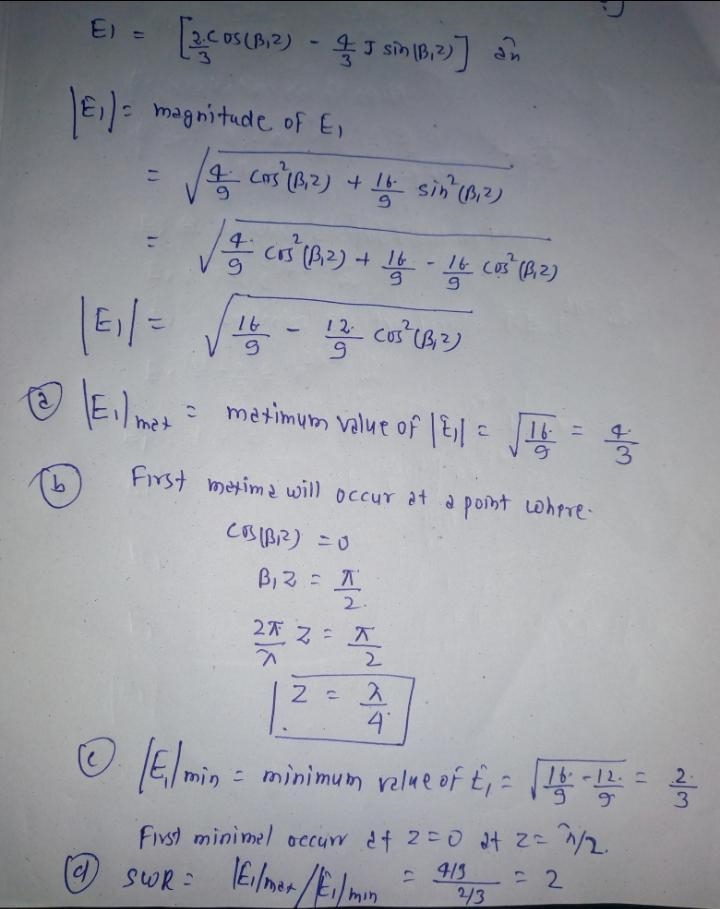 E1 = [2/3 cos(β1z) - 4/3 J sin(β1z)] an
|E1| = magnitude of E1
= √(4/9 cos²(β1z) + 16/9 sin²(β1z))
= √(4/9 cos²(β1z) + 16/9 - 16/9 cos²(β1z))
|E1| = √(16/9 - 12/9 cos²(β1z))
(a) |E1|max = maximum value of |E1| = √(16/9) = 4/3
(b) First maxima will occur at a point where
cos(β1z) = 0
β1z = π/2
2π/λ z = π/2
z = λ/4
(c) |E1|min = minimum value of E1 = √(16/9 - 12/9) = 2/3
First minimal occurr at z=0 at z= λ/2.
(d) SWR = |E1|max/|E1|min = 4/3 / 2/3 = 2